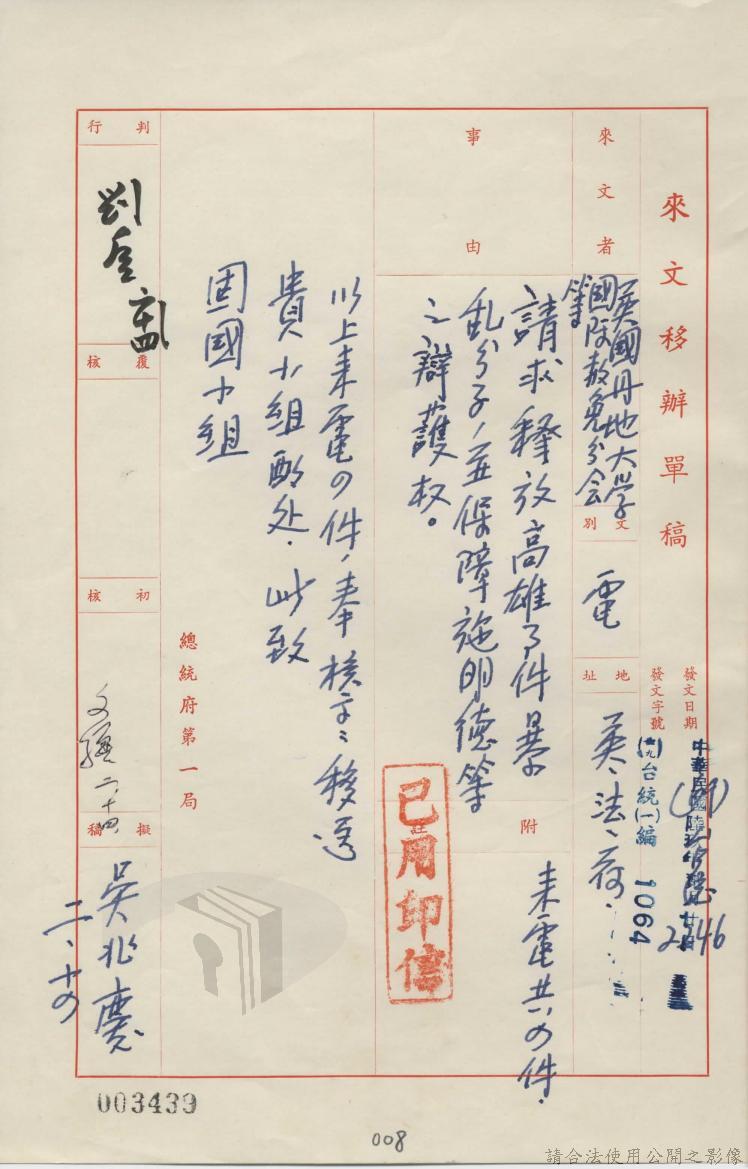 來文移辦單稿
發文日期
發文字號
(六九)台統(一)編 1064
來文者
英國丹地大学
國際赦免分会
等
文別
電
地址
英、法、荷
事由
請求釋放高雄事件暴
乱分子,並保障施明德等
之辯護权。
附註
来電共四件.
已用印信
以上来電四件,奉核示:移送
貴小組酌处.此致
固國小組
總統府第一局
判行
覆核
初核
二十四
擬稿
吳兆慶
二、十四
003439
008
請合法使用公開之影像